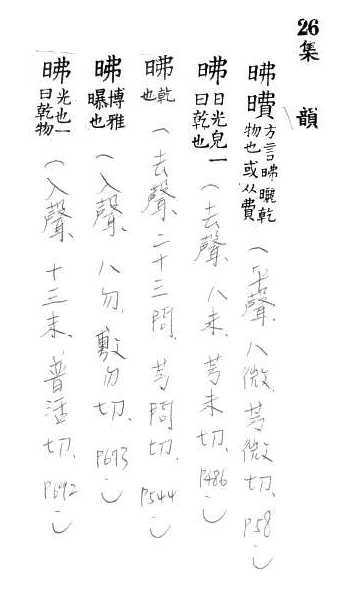 26 集韻
昲曊 方言昲曬乾物也或从費（平聲、八微、芳微切、P58）
昲 日光皃一曰乾也（去聲、八未、芳未切、P486）
昲 乾也（去聲二十三問、芳問切、P544）
昲 博雅曝也（入聲、八勿、敷勿切、P673）
昲 光也一曰乾物（入聲、十三末、普活切、P692）